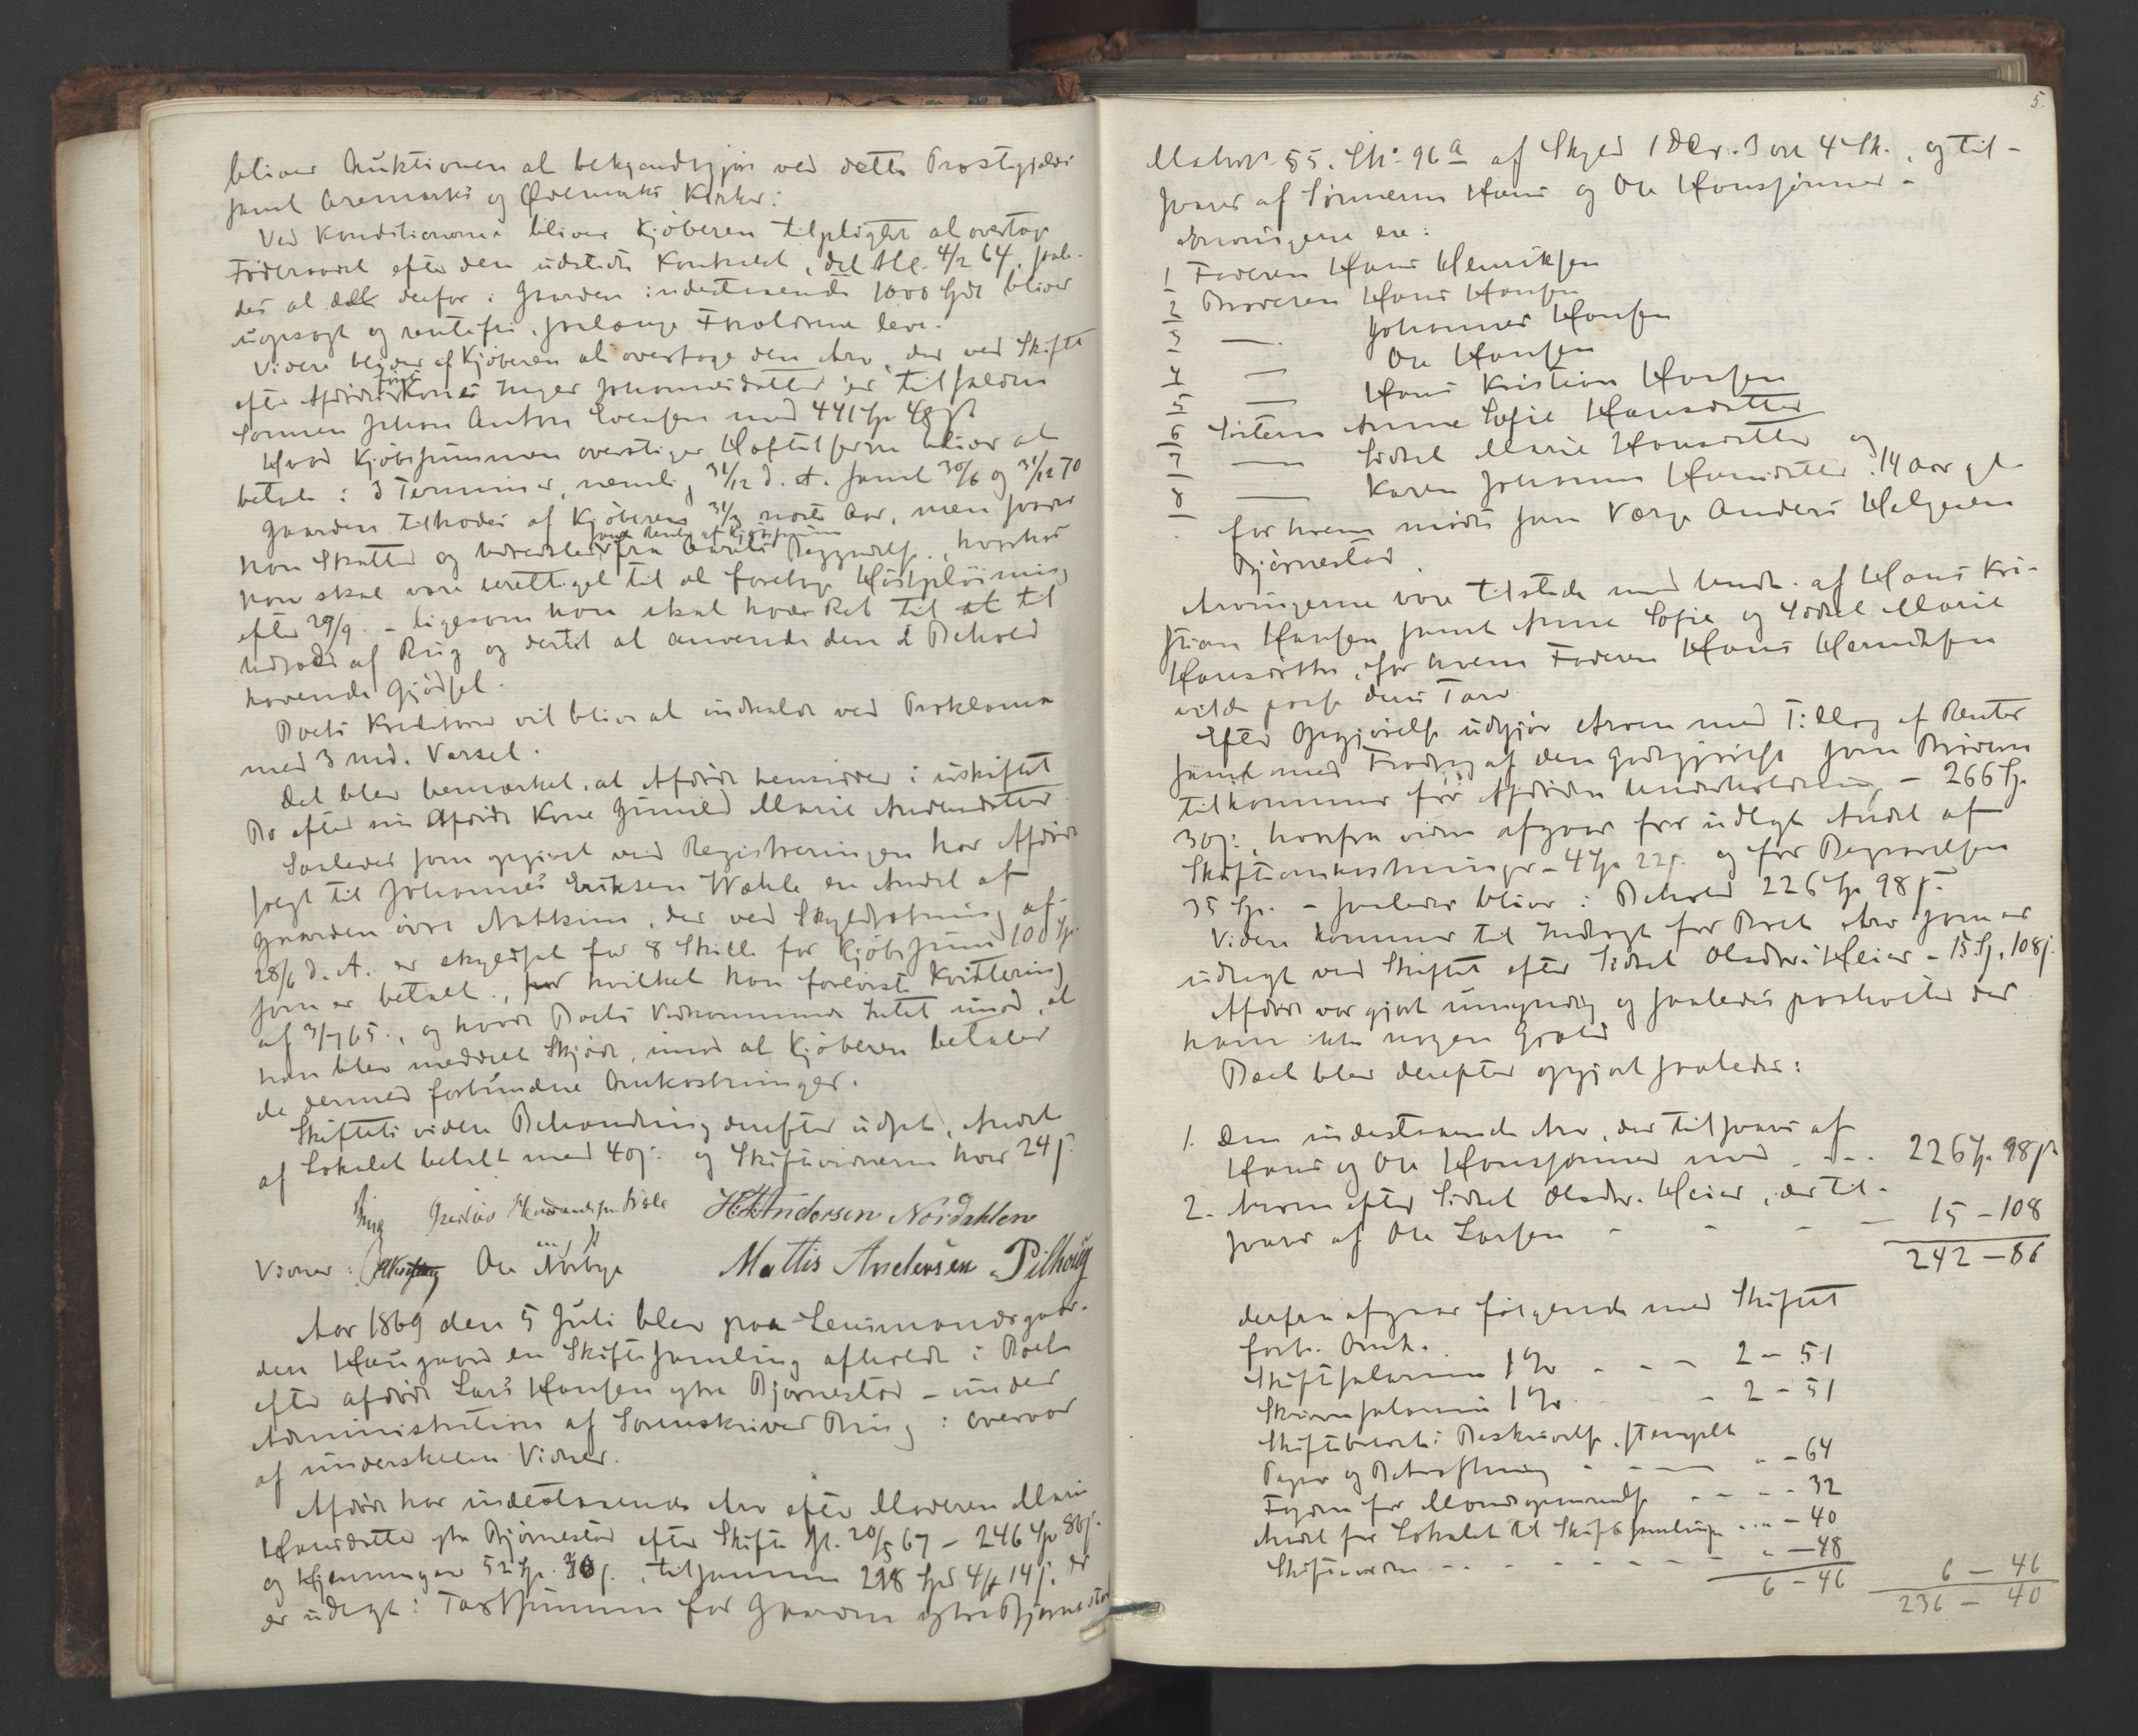 bliver Auktionen at bekjendtgjøre ved dette Prestegjælds
samt Aremarks og Ødemarks Kirker.
Ved Konditionerne bliver Kjøberen tilpligtet at overtage
Føderaadet efter den udstedte Kontrakt, dat thl. 4/2 64, saale-
des at det derfor i Gaarden indestaaende 1000 Spd bliver
uopsagt og rentefri, saalænge Fholderne leve.
Videre bliver af Kjøberen at overtage den Arv, der ved Skifte
efter Afdødes første Kone Inger Johannesdatter er tilfalden
Sønnen Johan Anton Evensen med 441 Sp 48 sk
Hvad Kjøbesummen overstiger Heftelserne bliver at
betale i 3 Terminer, nemlig 31/12 d. A. samt 30/6 og 31/12 70
Gaarden tiltrædes af Kjøberen 31/3 næste Aar, men svarer
han Skatter og Udredsler samt Rente af Kjøbesummen fra Aarets Begyndelse, hvorhos
han skal være berettiget til at foretage Høstpløining
efter 29/9. - ligesom han skal have Ret til at til
Udsæd af Rug og dertil at anvende den i Behold
havende Gjødsel.
Boets Kreditorer vil blive at indkalde ved Proklama
med 3 md. Varsel.
Det blev bemærket, at Afdøde hensidder i uskiftet
Bo efter sin Afdøde Kone Gunild Marie Andersdatter
Saaledes som opgivet ved Registreringen har Afdøde
solgt til Johannes Eriksen Wæhle en Andel af
Gaarden øvre, der ved Skyldsætning af
28/6 d. A. er skyldsat for 8 Skill. for Kjøbesum 100 Sp
som er betalt, for hvilket han foreviste Kvittering
af 3/7 65., og havde Boets Vedkommende Intet imod, at
han blev meddelt Skjøde, imod at Kjøberen betaler
de dermed forbundne Omkostninger.
Skiftets videre Behandling derefter udsat, Andel
af Lokalet betalt med 40 s. og Skiftevidnerne hver 24 s.
Bing H. Andersen Nordahlen
Vidner: Ole Norbye Mattis Andersen Pilhoug
Aar 1869 den 5 Juli blev paa Lensmandsgaar-
den Haugaard en Skiftesamling afholdt i Boet
efter afdøde Lars Hansen ytre Bjørnestad - under
Administration af Sorenskriver Bing i Overvær
af underskrevne Vidner.
Afdøde har indestaaende Arv efter Moderen Marie
Hansdatter ytre Bjørnestad efter Skifte sl. 20/5 67 - 246 Sp 86 s.
og 52 Sp. 30 s., tilsammen 298 Spd 4 14 s. der
er udlagt i Taxtsummen for Gaarden ytre Bjørnestad
5.
Matr No 55. Lb. No 96 a af Skyld 1 Dlr. 3 ort 4 Sk., og til-
svares af Sønnerne Hans og Ole Hanssønner -
Arvingerne ere:
1 Faderen Hans Henriksen
2 Broderen Hans Hansen
3 — Johannes Hansen
4 — Ole Hansen
5 — Hans Kristian Hansen
6 Søsteren Anne Sofie Hansdatter
7 — Sidsel Marie Hansdatter og
8 — Karen Johanne Hansdatter 14 Aar gl.
for hvem mødte som Værge Anders Helgesen
Bjørnestad.
Arvingerne vare tilstede med Undt. af Hans Kri-
stian Hansen samt Anne Sofie og Sidsel Marie
Hansdøttre, for hvem Faderen Hans Henriksen
vilde passe deres Tarv
Efter Opgjørelse udgjør Arven med Tillæg af Renter
samt med Fradrag af den Godtgjørelse som Brødrene
tilkommer for Afdødes Underholdning - 266 Sp.
30 s., hvorfra videre afgaar for udlagt Andel af
Skifteomkostninger - 4 Sp. 22 s. og for Begravelsen
35 Sp. - saaledes bliver i Behold 226 Sp 98 s.
Videre kommer til Indtægt for Boet Arv som er
udlagt ved Skiftet efter Sidsel Olsdtr. Heier - 15 Sp. 108 s.
Afdøde var gjort umyndig og saaledes paahvilte der
ham ikke nogen Gjæld
Boet blev derefter opgjort saaledes:
1. Den indestaaende Arv, der tilsvares af
Hans og Ole Hanssønner med - - - 226 Sp. 98 s
2. Arven efter Sidsel Olsdtr. Heier, der til-
svares af Ole Larsen - - - - 15 - 108
242 - 86
Derfra afgaar følgende med Skiftet
forb. Omk.
Skiftesalarium 1 % - - - 2 - 51
Skriversalarium 1 % - - 2 - 51
Skiftebrevets Beskrivelse, stemplet
Papir og Bekræftning - - - " - 64
Fogden for - - - - 32
Andel for Lokalet til Skiftesamlinger ... - 40
Skiftevidner - - - - - - - " - 48
6 - 46 6 - 46
236 - 40